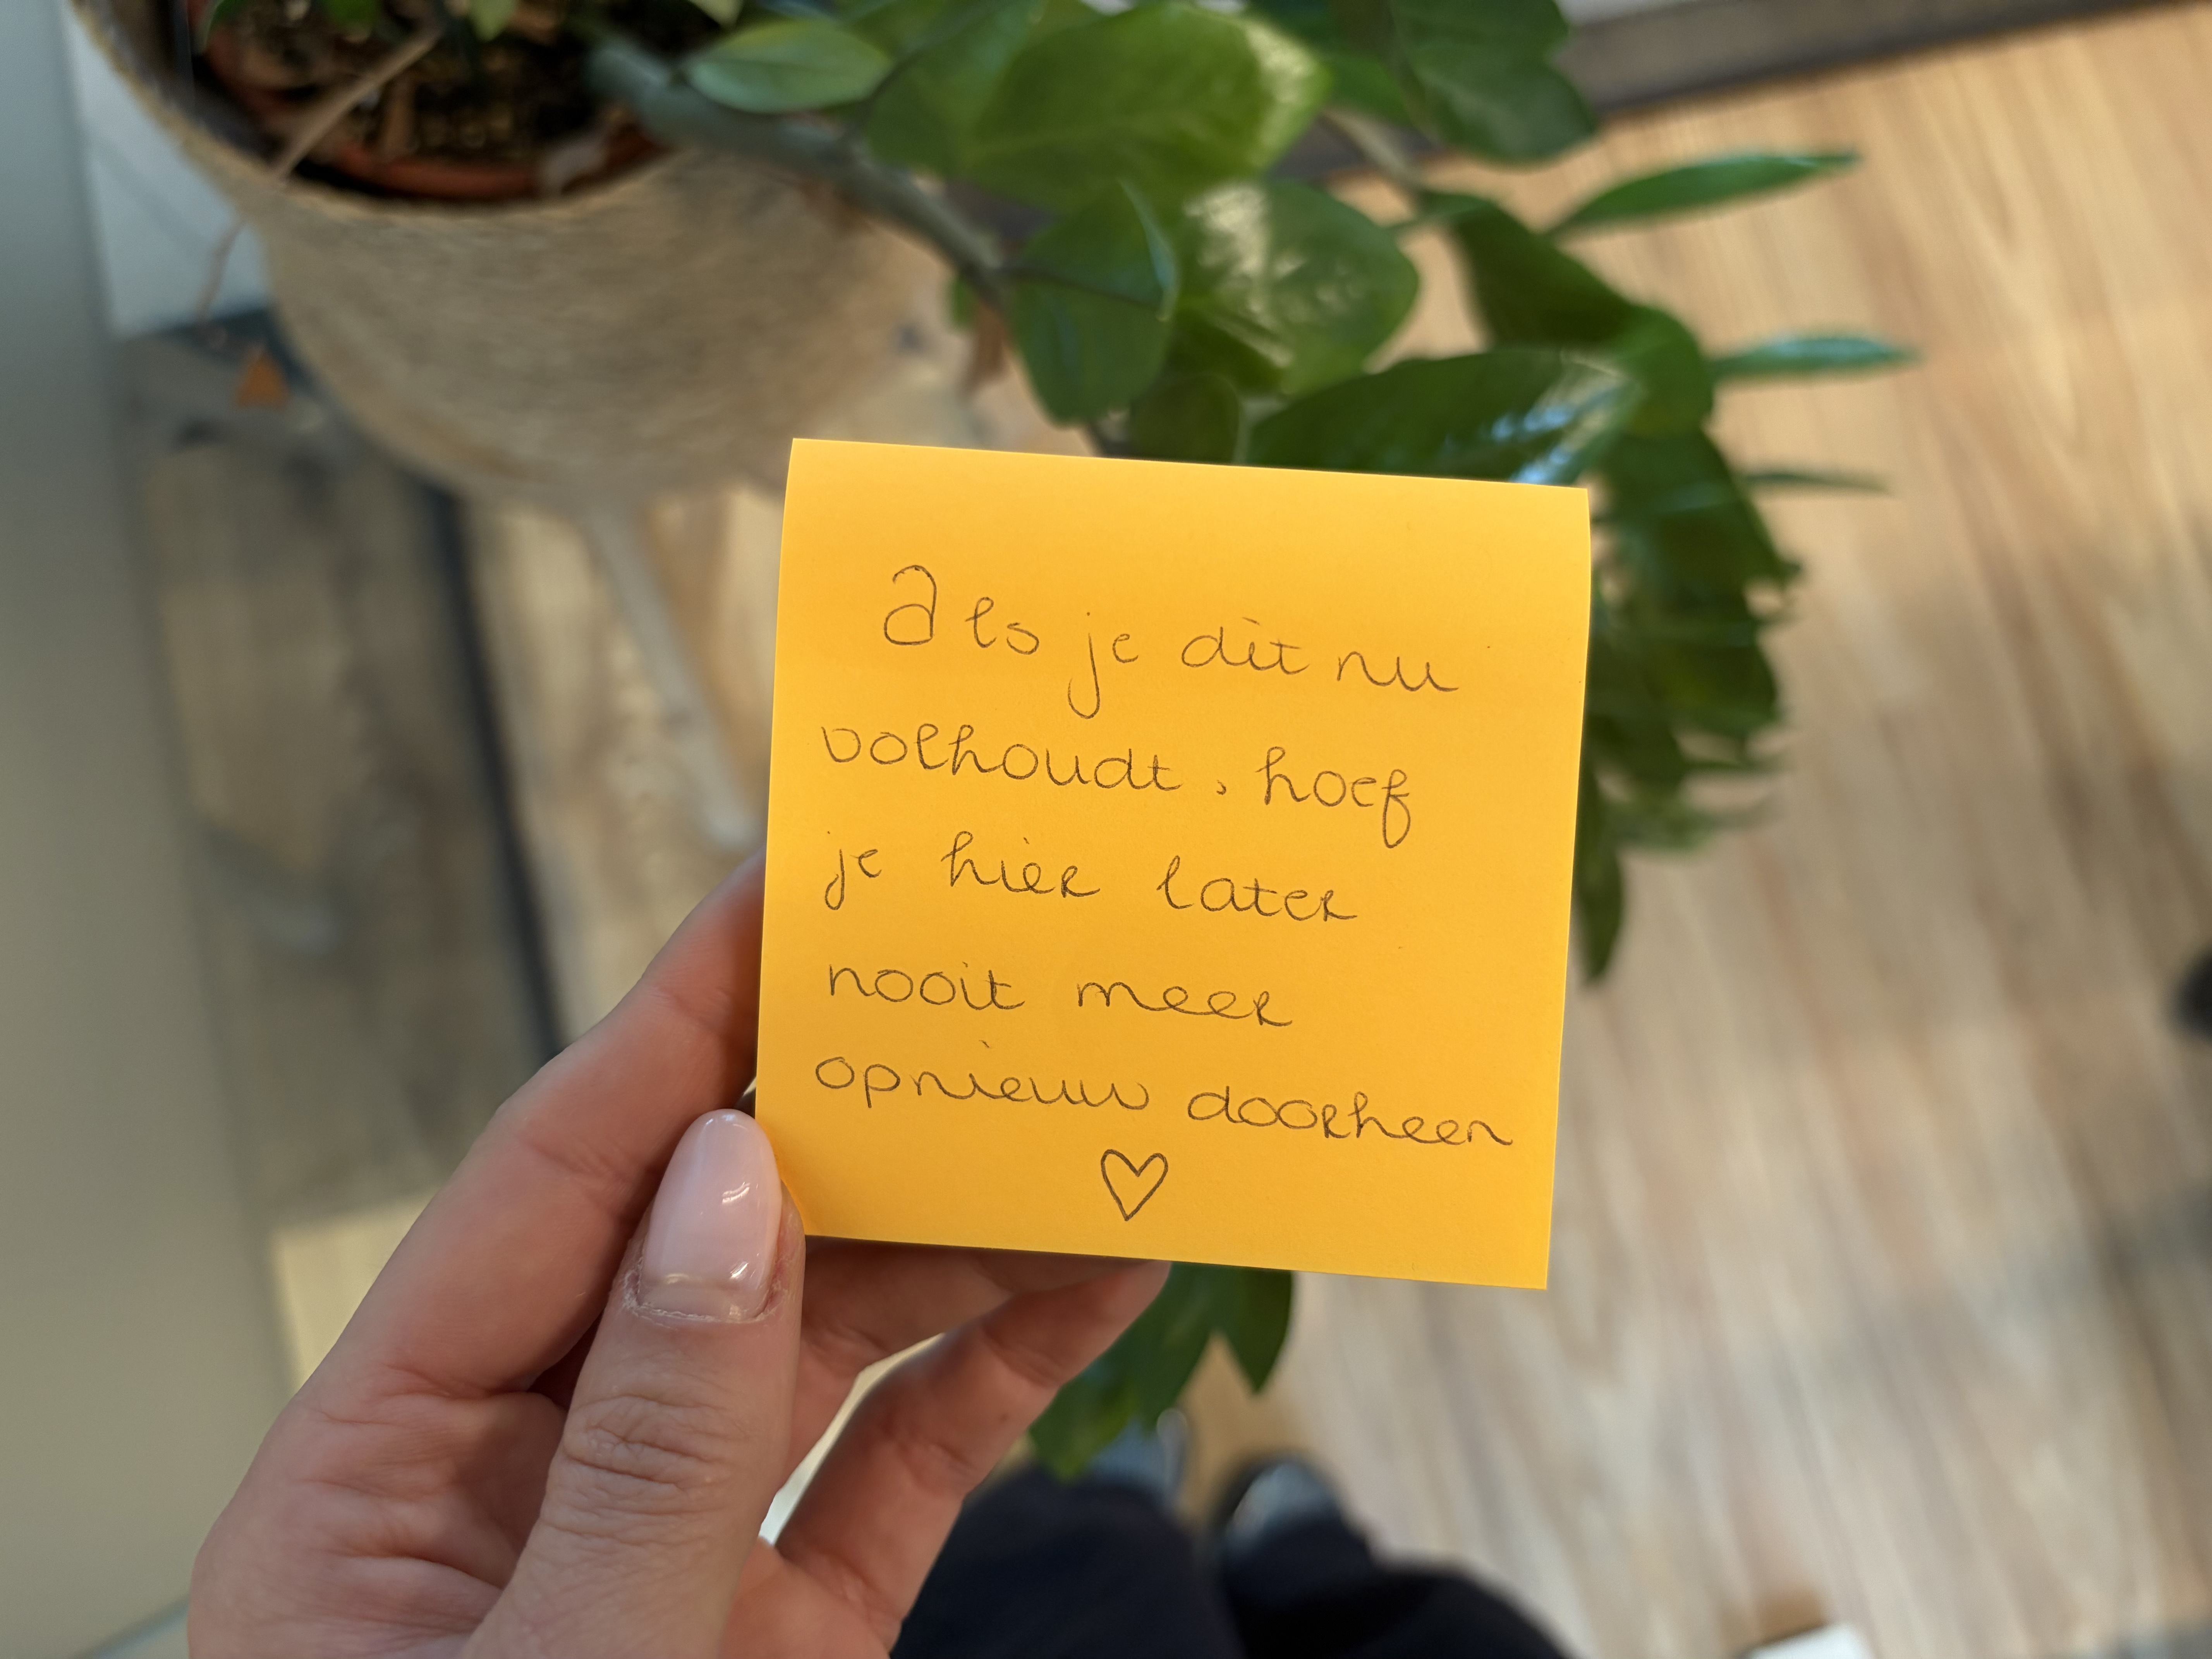 Als je dit nu
volhoudt, hoef
je hier later
nooit meer
opnieuw doorheen
♡